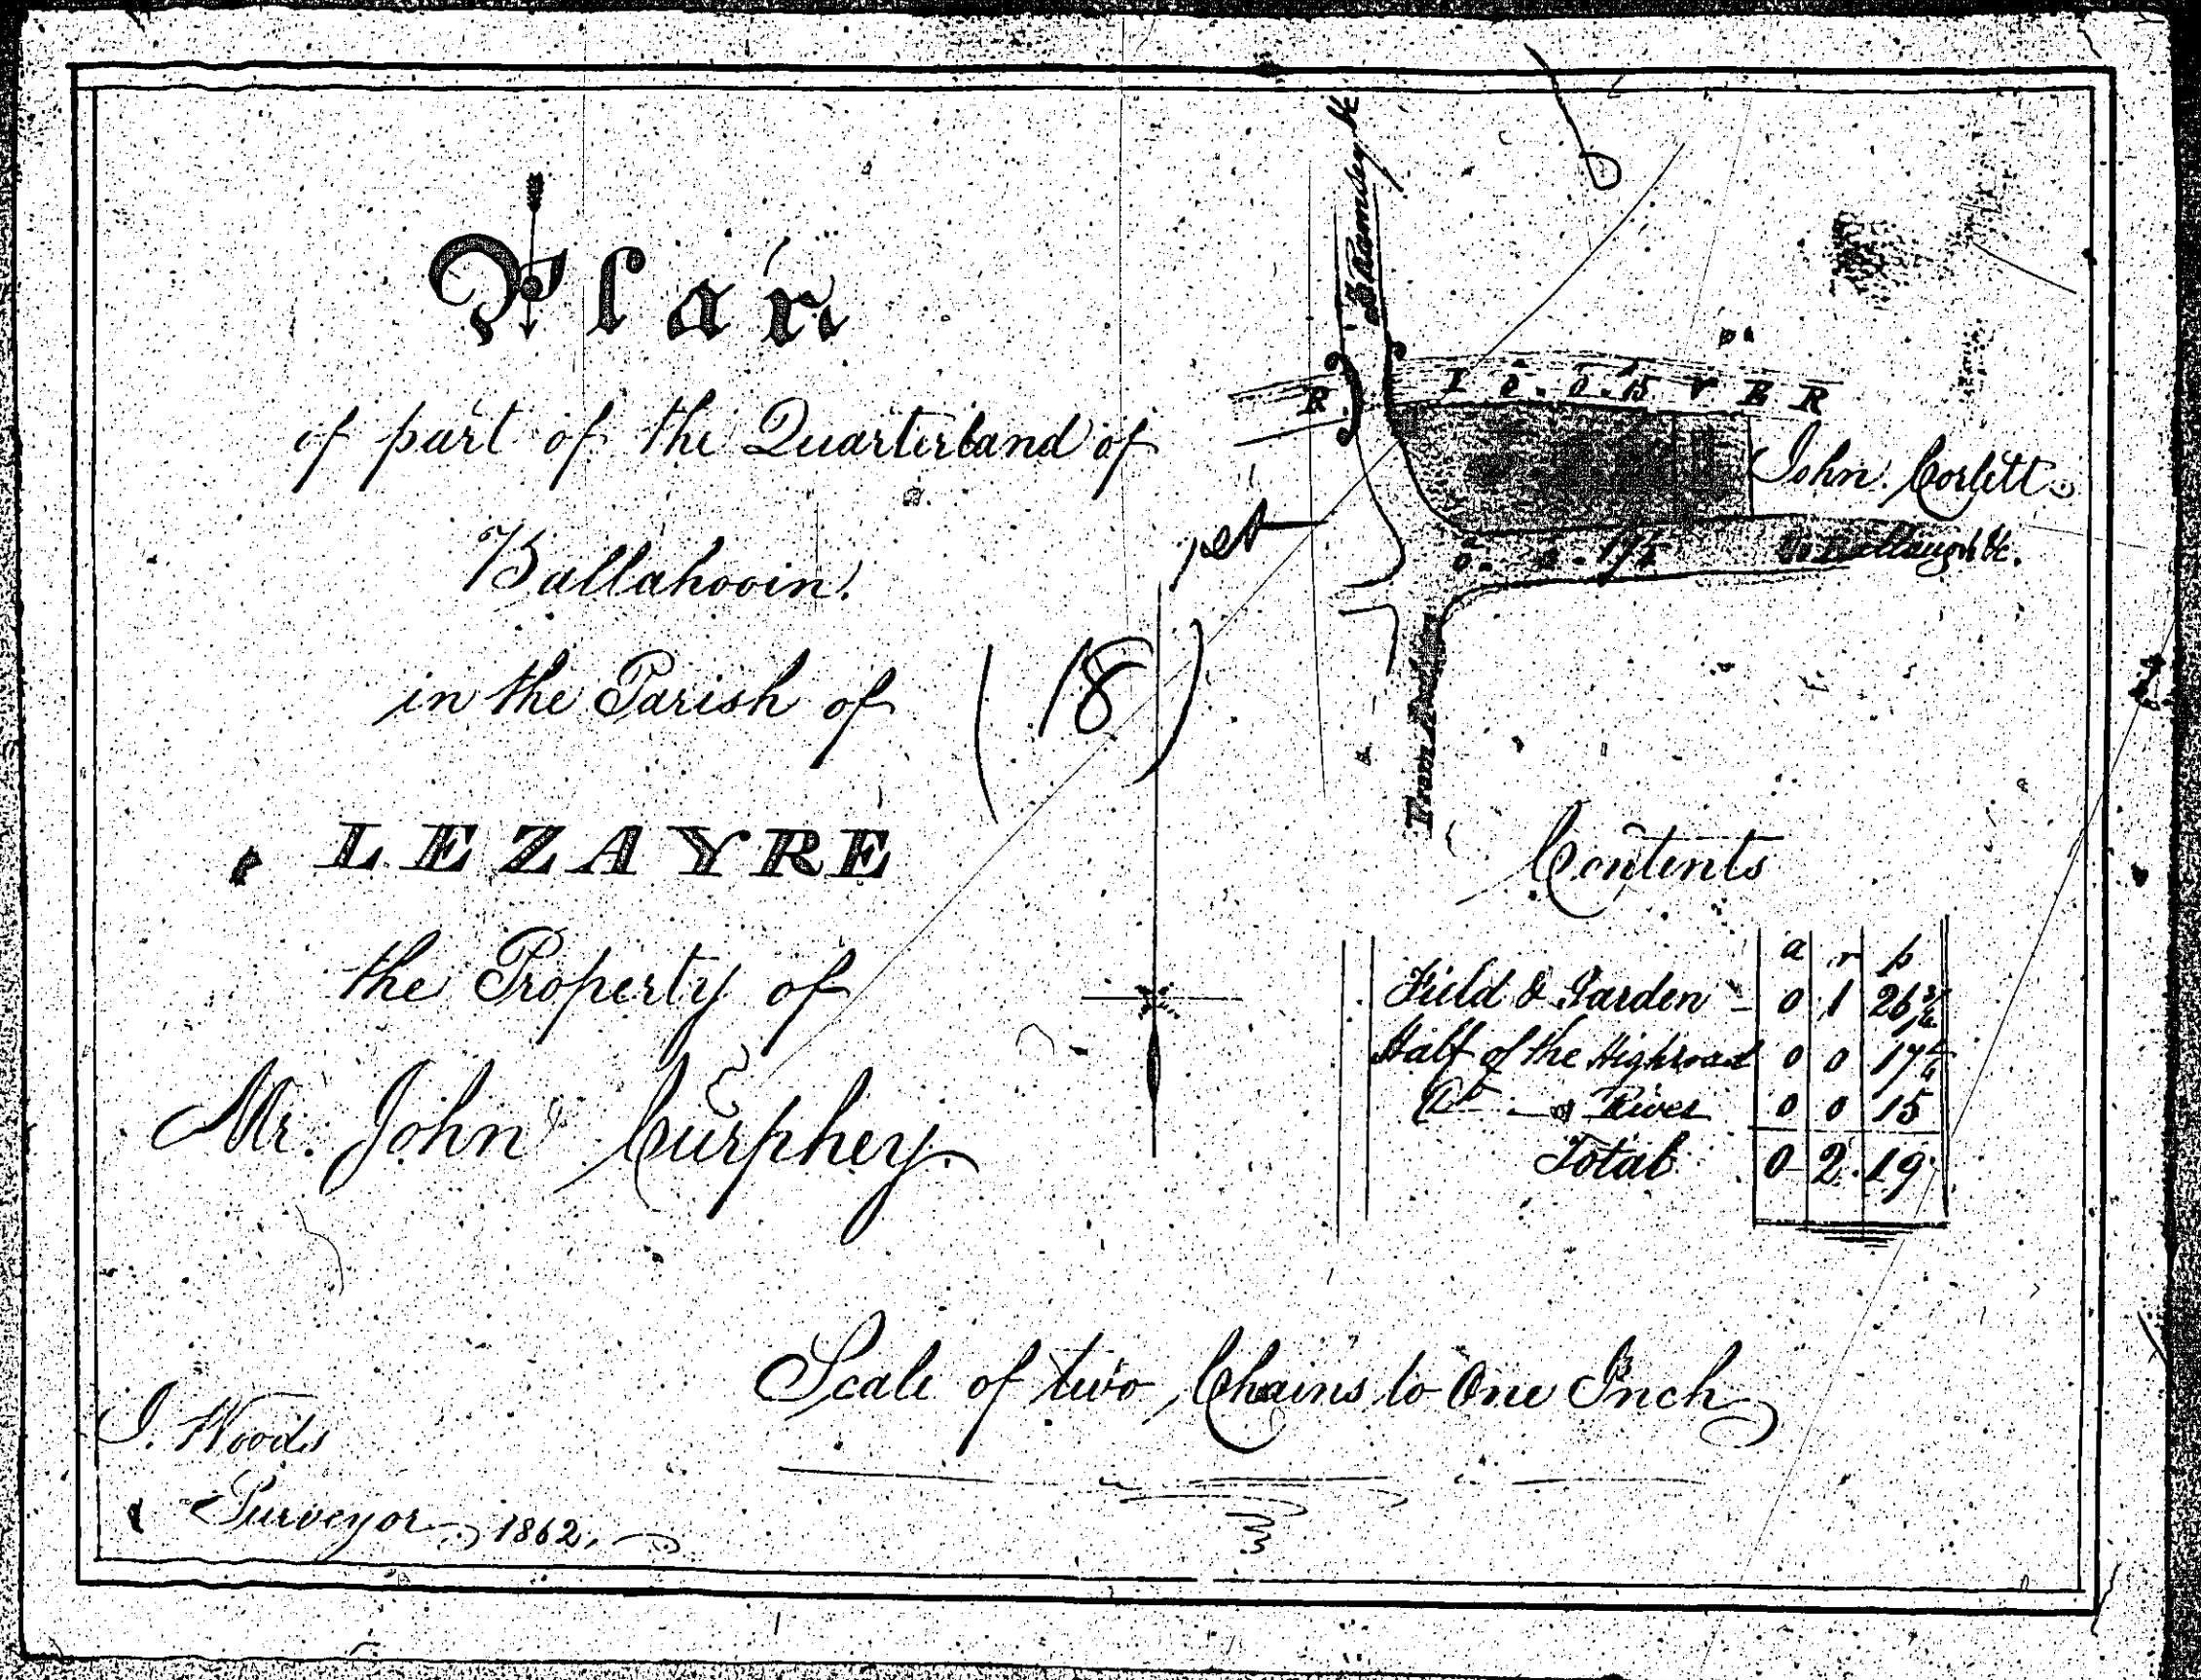 Plan
of part of the Quarterland of
Ballahooin
in the Parish of
(18)
LEZAYRE
the Property of
Mr. John Curphey
To Ramsey &c
R I V E R
0 . 0 . 15
John Corlett
0 . 0 . 17 1/4
To Ballaugh &c.
From
Contents
a r p
Field & Garden 0 1 26 3/4
Half of the Highroad 0 0 17 1/4
Do of River 0 0 15
Total 0 2 19
Scale of two Chains to One Inch
J. Woods
Surveyor, 1862,